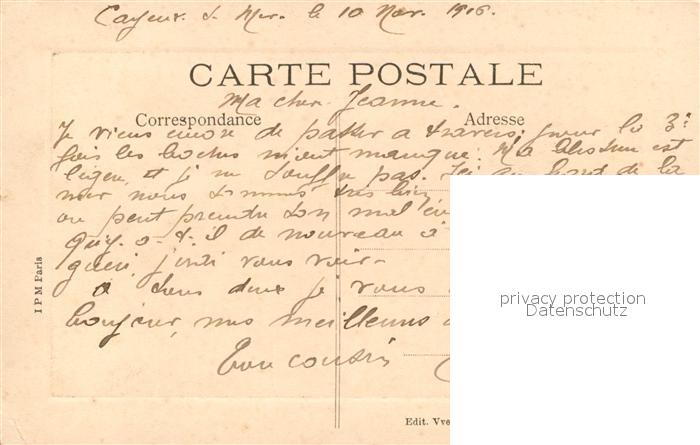 Cayeux s. Mer. le 10 Nov. 1916.
CARTE POSTALE
Ma cher Jeanne.
Correspondance
Adresse
Je viens encore de passer a travers; pour la 3e
fois les boches m'ont manqué. Ma blessure est
légère, et je ne souffre pas. Ici au bord de la
mer nous sommes très bien
on peut prendre son mal en
qu'y a-t-il de nouveau à
guéri j'irai vous voir.
a tous deux je vous
bonjour, mes meilleurs
Ton cousin
I P M Paris
Edit. Vve
privacy protection
Datenschutz